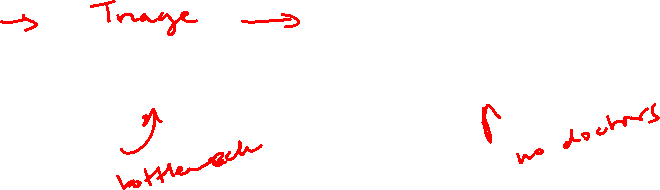 → Triage →
bottleneck
no doctors